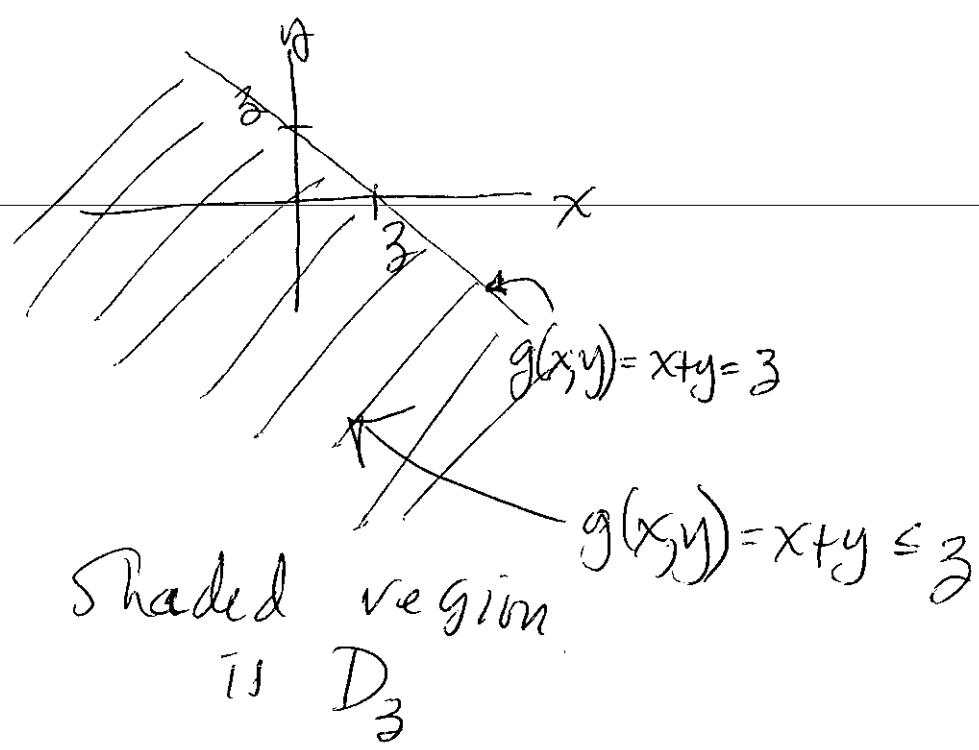 y
z
x
z
g(x,y) = x+y = z
g(x,y) = x+y ≤ z
Shaded region
is D_z